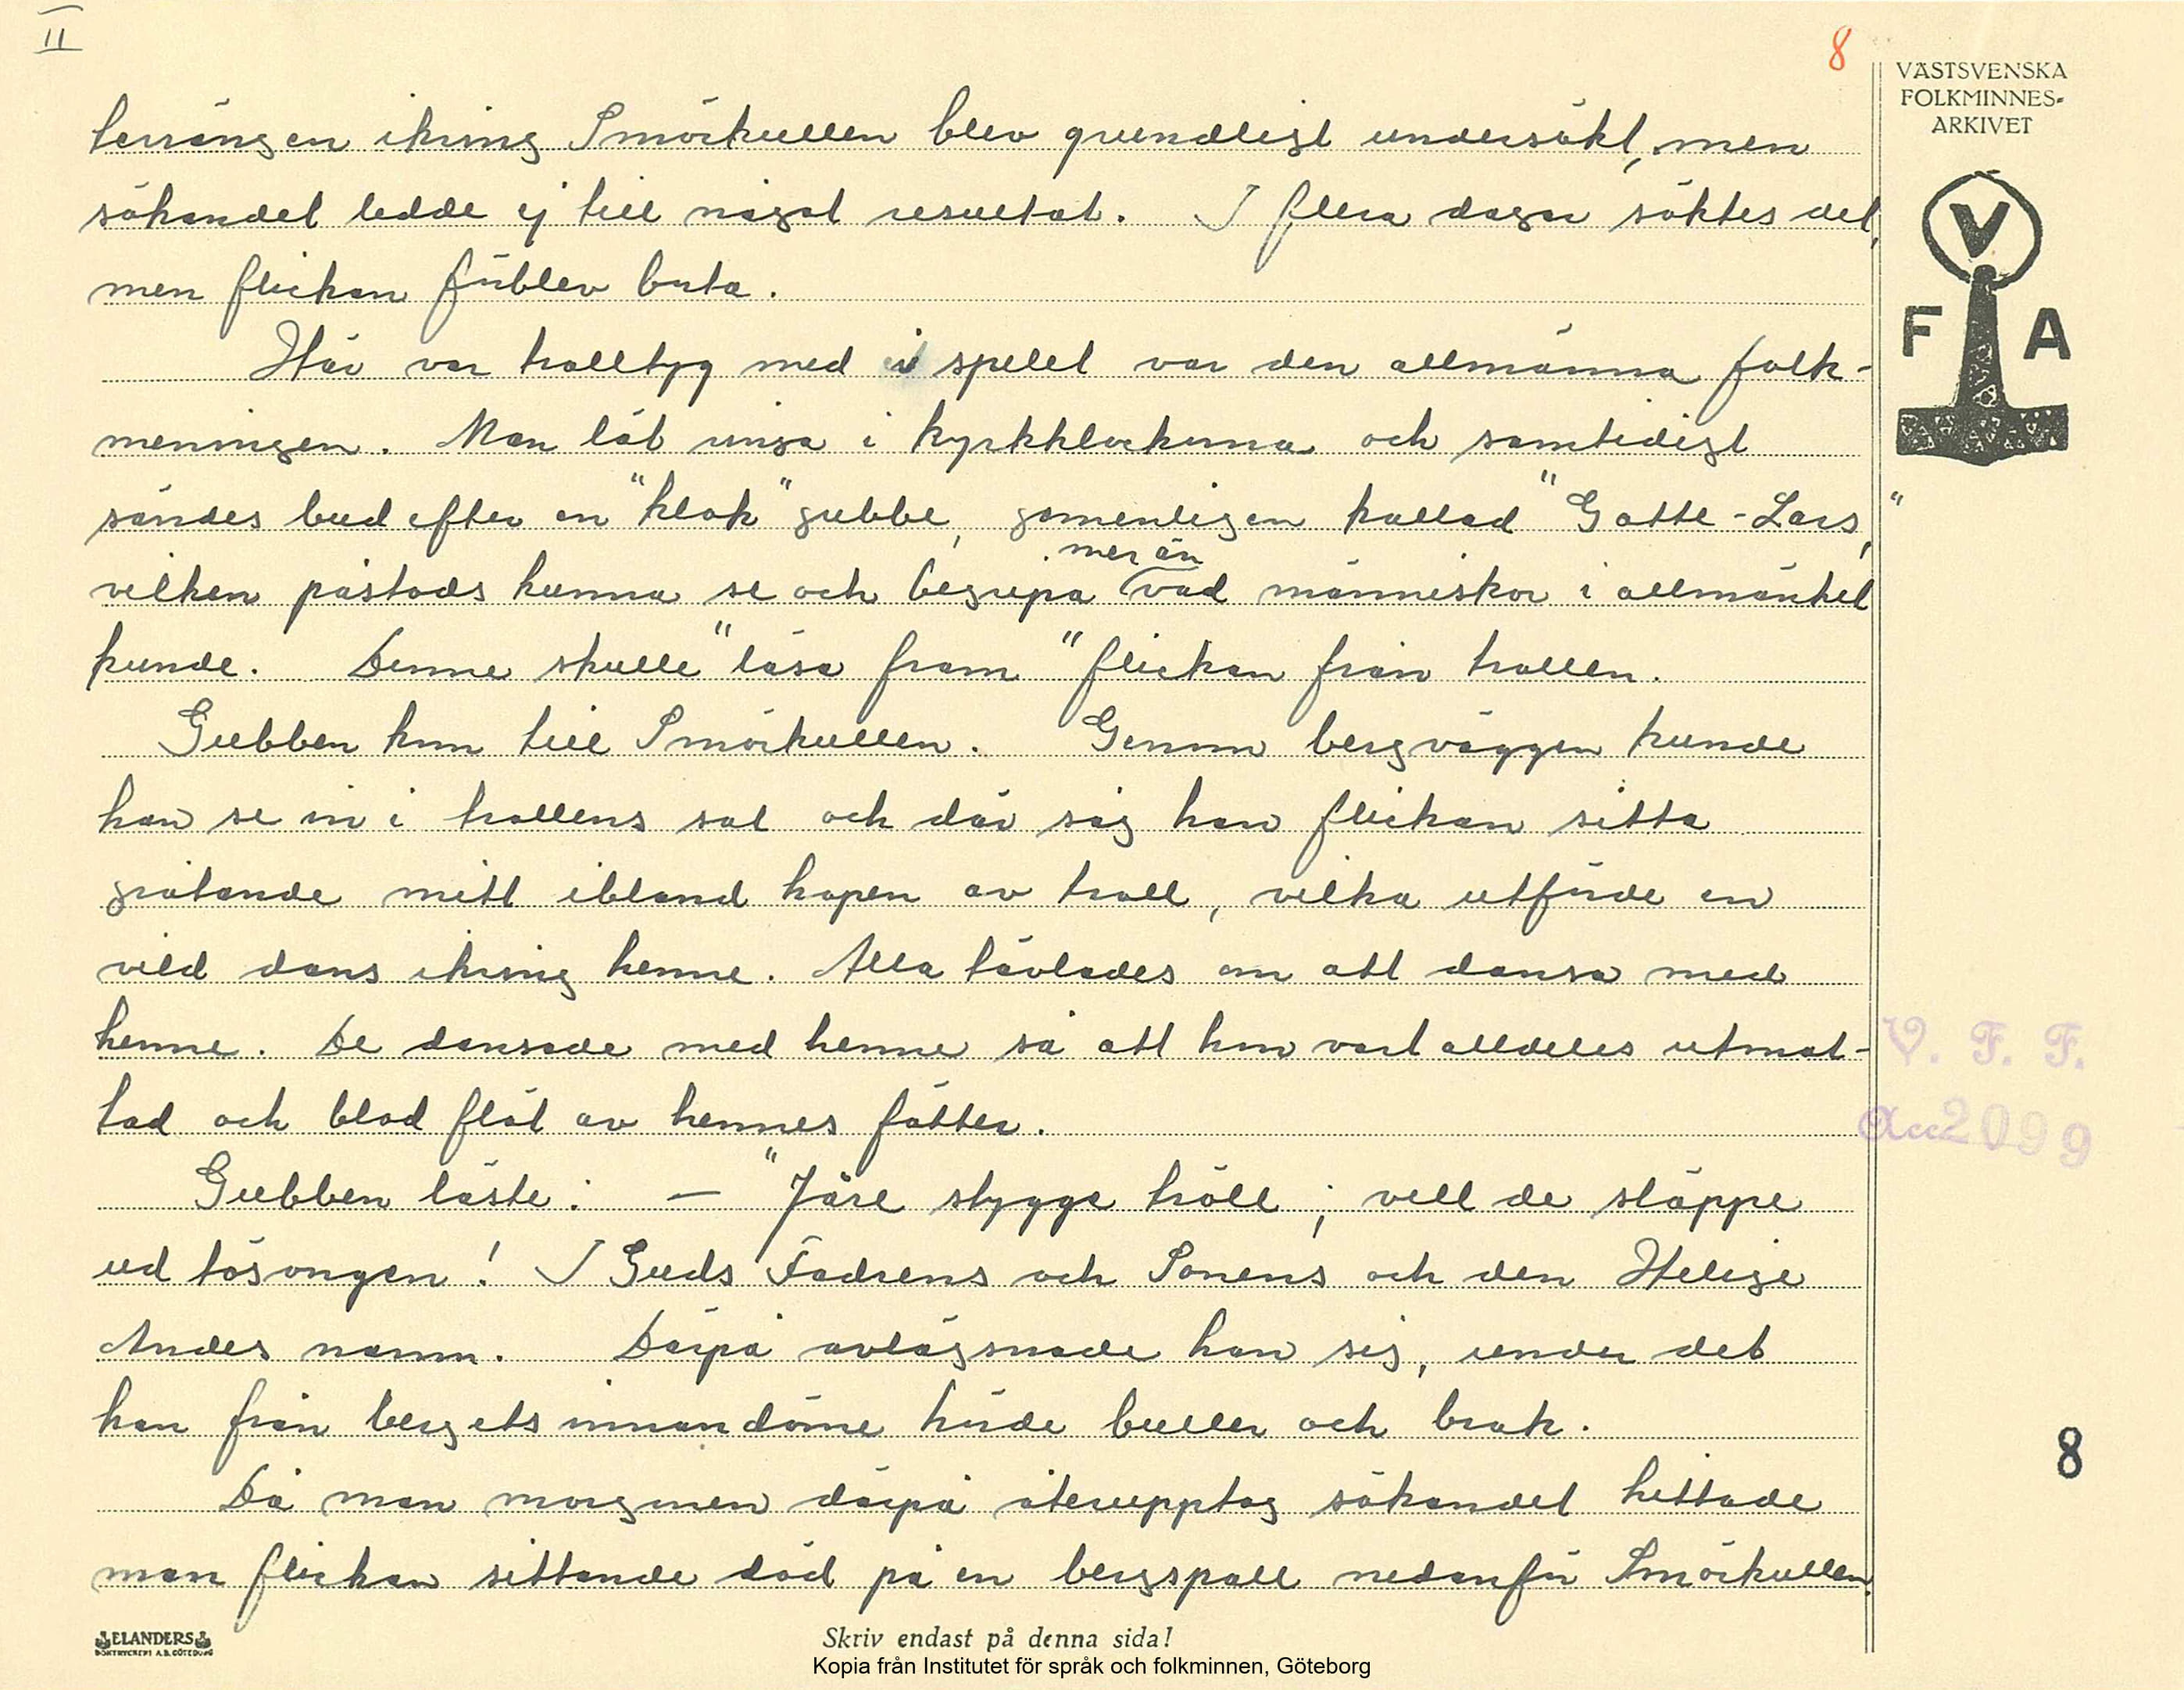 II
8
VÄSTSVENSKA
FOLKMINNES-
ARKIVET
V
F A
terrängen ikring Smörkullen blev grundligt undersökt, men
sökandet ledde ej till något resultat. I flera dagar söktes det,
men flickan förblev borta.
Här var trolltyg med i spelet var den allmänna folk-
meningen. Man lät ringa i kyrkklockorna och samtidigt
sändes bud efter en "klok" gubbe, gemenligen kallad "Gatte-Lars",
mer än
vilken påstods kunna se och begripa vad människor i allmänhet
kunde. Denne skulle "läsa fram" flickan från trollen.
Gubben kom till Smörkullen. Genom bergväggen kunde
han se in i trollens sal och där såg han flickan sitta
gråtande mitt ibland hopen av troll, vilka utförde en
vild dans ikring henne. Alla tävlades om att dansa med
henne. De dansade med henne så att hon vart alldeles utmat-
tad och blod flöt av hennes fötter.
Gubben läste: — "Jåre stygge tröll; vell de släppe
ud tösongen! I Guds Fadrens och Sonens och den Helige
Andes namn. Därpå avlägsnade han sig, under det
han från bergets innandöme hörde buller och brak.
Då man morgonen därpå återupptog sökandet hittade
man flickan sittande död på en bergspall nedanför Smörkullen.
V. F. F.
Acc 2099
8
ELANDERS
BOKTRYCKERI A.B. GÖTEBORG
Skriv endast på denna sida!
Kopia från Institutet för språk och folkminnen, Göteborg